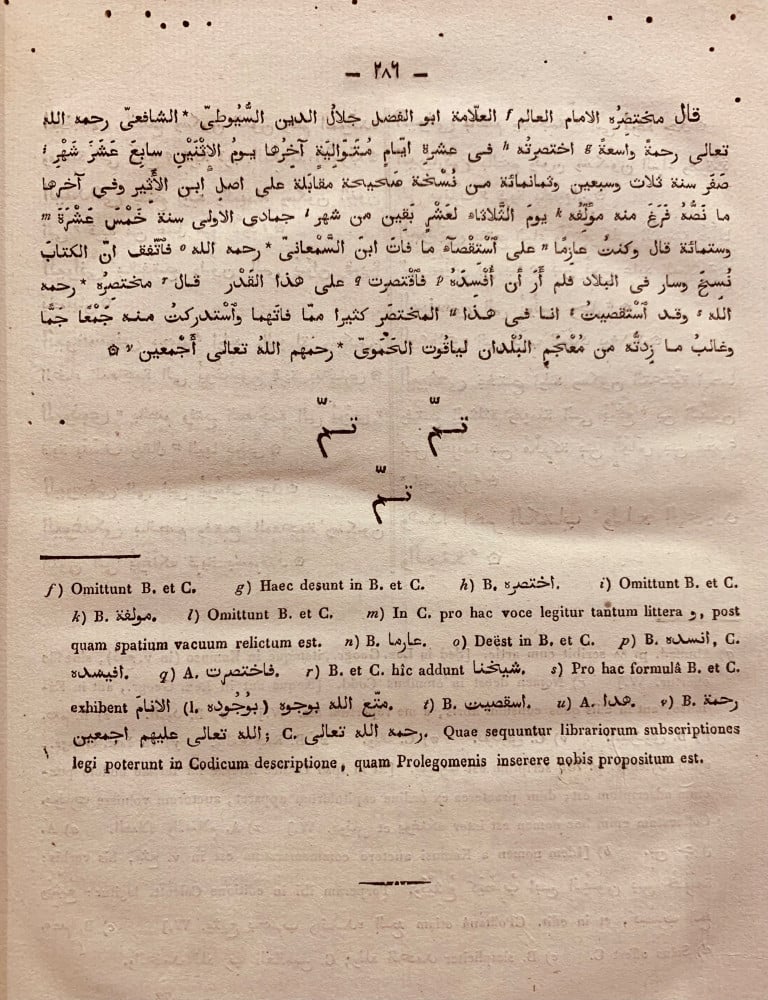 — ٢٨٦ —
قال مختصرُه الامام العالم f العلّامة ابو الفضل جلالُ الدين السُّيوطىّ * الشافعىّ رحمه الله
تعالى رحمةً واسعةً g اختصرتُه h فى عشرةِ ايّامٍ مُتَوالِيَةٍ آخِرُها يومُ الاِثْنَيْنِ سابِعَ عَشَرَ شَهْرِ i
صَفَرَ سنة ثلاث وسبعين وثمانمائة من نُسْخة صَحيحة مقابَلة على اصلِ ابنِ الأَثيرِ وفى آخرها
ما نَصُّهُ فَرَغَ منه مؤلِّفُه k يومَ الثَّلاثاء لعَشْرٍ بَقِين من شهر l جمادى الاولى سنة خَمْسَ عَشْرَةَ m
وستمائة قال وكنتُ عازِمًا n على ٱسْتِقْصآء ما فاتَ ابنَ السَّمْعانىّ * رحمه الله o فاتّفق انّ الكتابَ
نُسِخَ وسار فى البلاد فلم أَرَ أن أُفْسِدَهُ p فٱقْتصرت q على هذا القَدْر قال r مختصِرُه * رحمه
الله s وقد ٱسْتقصيتُ t انا فى هذا u المختصَر كثيرا ممّا فاتَهما وٱستدركتُ منه جَمْعًا جَمًّا
وغالبُ ما زِدتُّه من مُعْجَمِ البُلْدان لياقوت الحَمَوىّ * رحمَهم اللهُ تعالى أَجْمعين v ۞
تمّ تمّ
تمّ
f) Omittunt B. et C. g) Haec desunt in B. et C. h) B. اختصره. i) Omittunt B. et C.
k) B. مولفة. l) Omittunt B. et C. m) In C. pro hac voce legitur tantum littera و, post
quam spatium vacuum relictum est. n) B. عارما. o) Deëst in B. et C. p) B. انسده, C.
افيسده. q) A. فاختصرت. r) B. et C. hîc addunt شيخنا. s) Pro hac formulâ B. et C.
exhibent متّع الله بوجوه (l. بُوُجُوده) الانامَ. t) B. اسقصيت. u) A. هدا. v) B. رحمة
الله تعالى عليهم اجمعين; C. رحمه الله تعالى. Quae sequuntur librariorum subscriptiones
legi poterunt in Codicum descriptione, quam Prolegomenis inserere nobis propositum est.